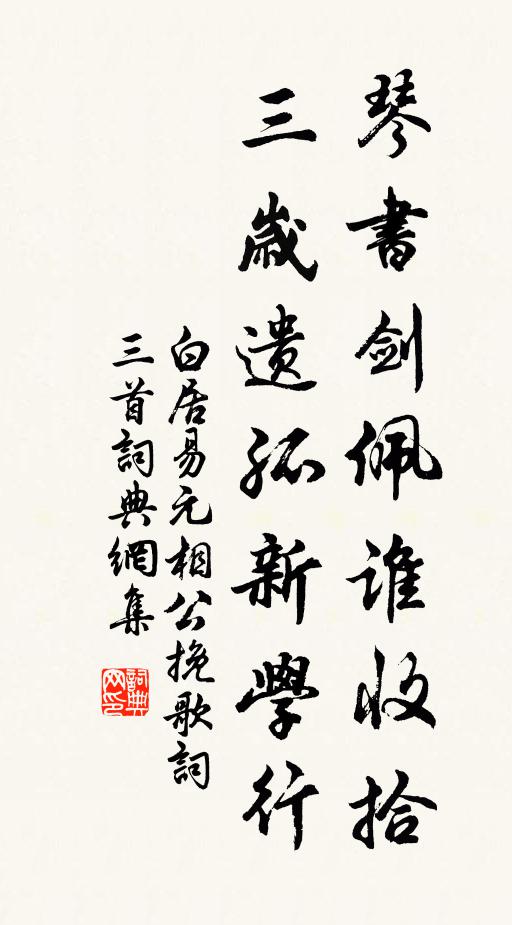 琴書劍佩誰收拾
三歲遺孤新學行
白居易元相公挽歌詞
三首詞典網集
詞典网印